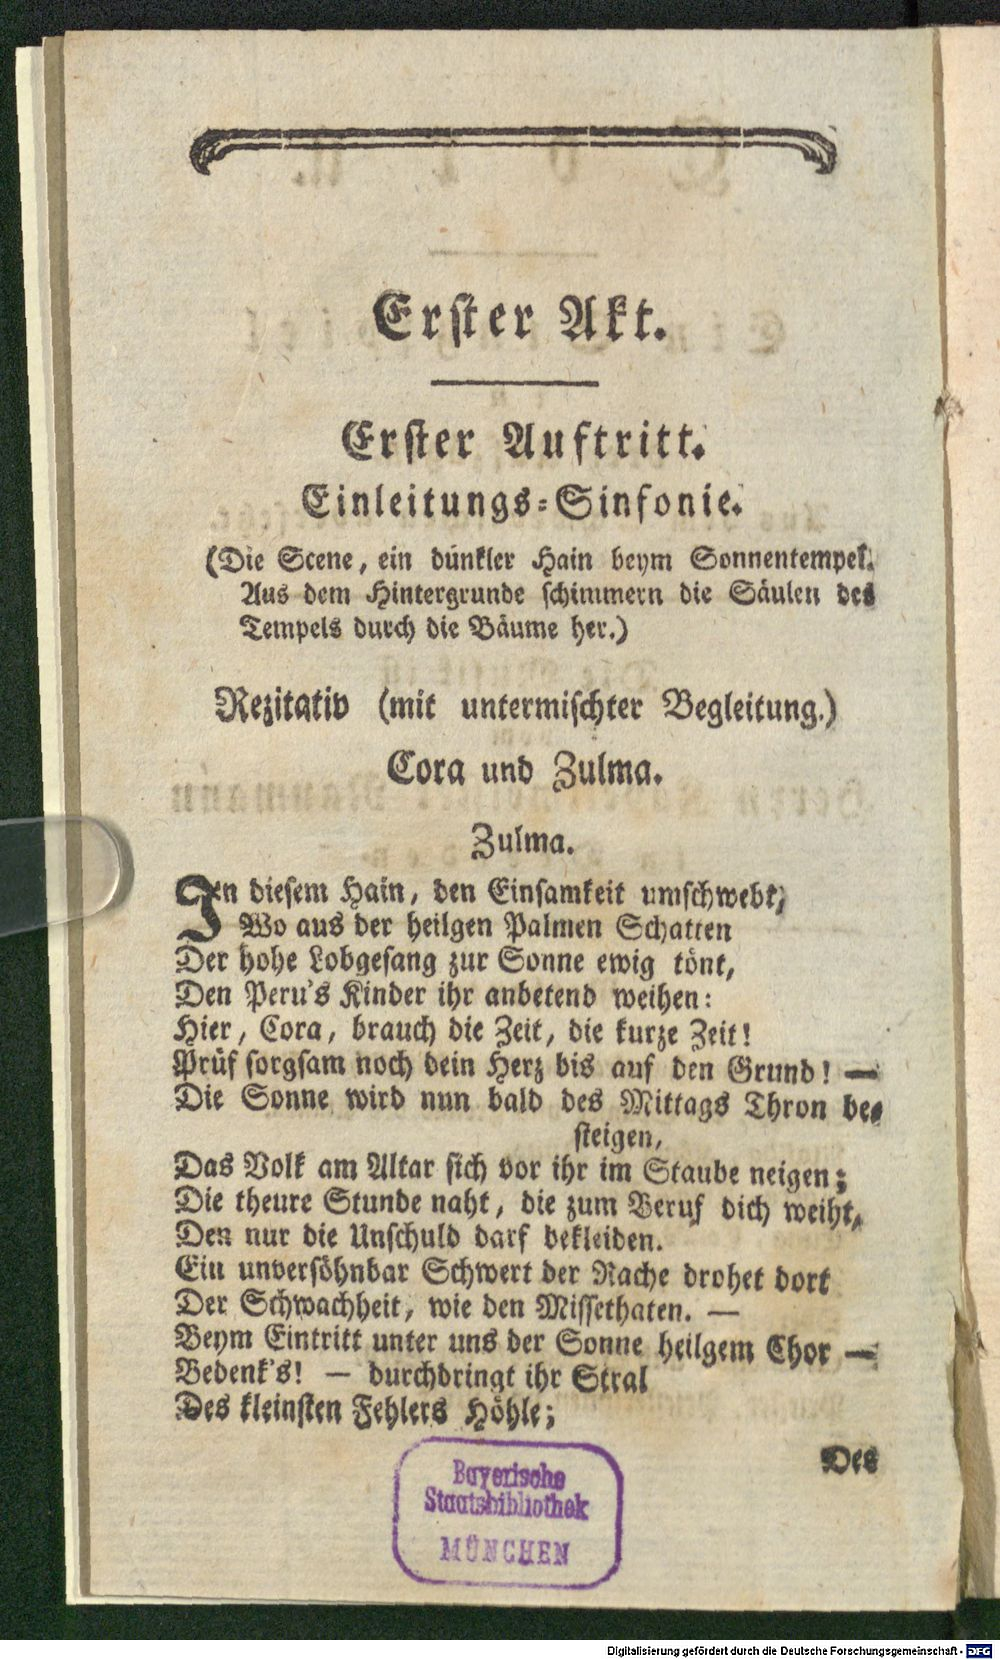 Erster Akt.
Erster Auftritt.
Einleitungs-Sinfonie.
(Die Scene, ein dunkler Hain beym Sonnentempel.
Aus dem Hintergrunde schimmern die Säulen des
Tempels durch die Bäume her.)
Rezitativ (mit untermischter Begleitung.)
Cora und Zulma.
Zulma.
In diesem Hain, den Einsamkeit umschwebt,
Wo aus der heilgen Palmen Schatten
Der hohe Lobgesang zur Sonne ewig tönt,
Den Peru's Kinder ihr anbetend weihen:
Hier, Cora, brauch die Zeit, die kurze Zeit!
Prüf sorgsam noch dein Herz bis auf den Grund! —
Die Sonne wird nun bald des Mittags Thron be-
steigen,
Das Volk am Altar sich vor ihr im Staube neigen;
Die theure Stunde naht, die zum Beruf dich weiht,
Den nur die Unschuld darf bekleiden.
Ein unversöhnbar Schwert der Rache drohet dort
Der Schwachheit, wie den Missethaten. —
Beym Eintritt unter uns der Sonne heilgem Chor —
Bedenk's! — durchdringt ihr Stral
Des kleinsten Fehlers Höhle;
Des
Bayerische
Staatsbibliothek
MÜNCHEN
Digitalisierung gefördert durch die Deutsche Forschungsgemeinschaft - DFG